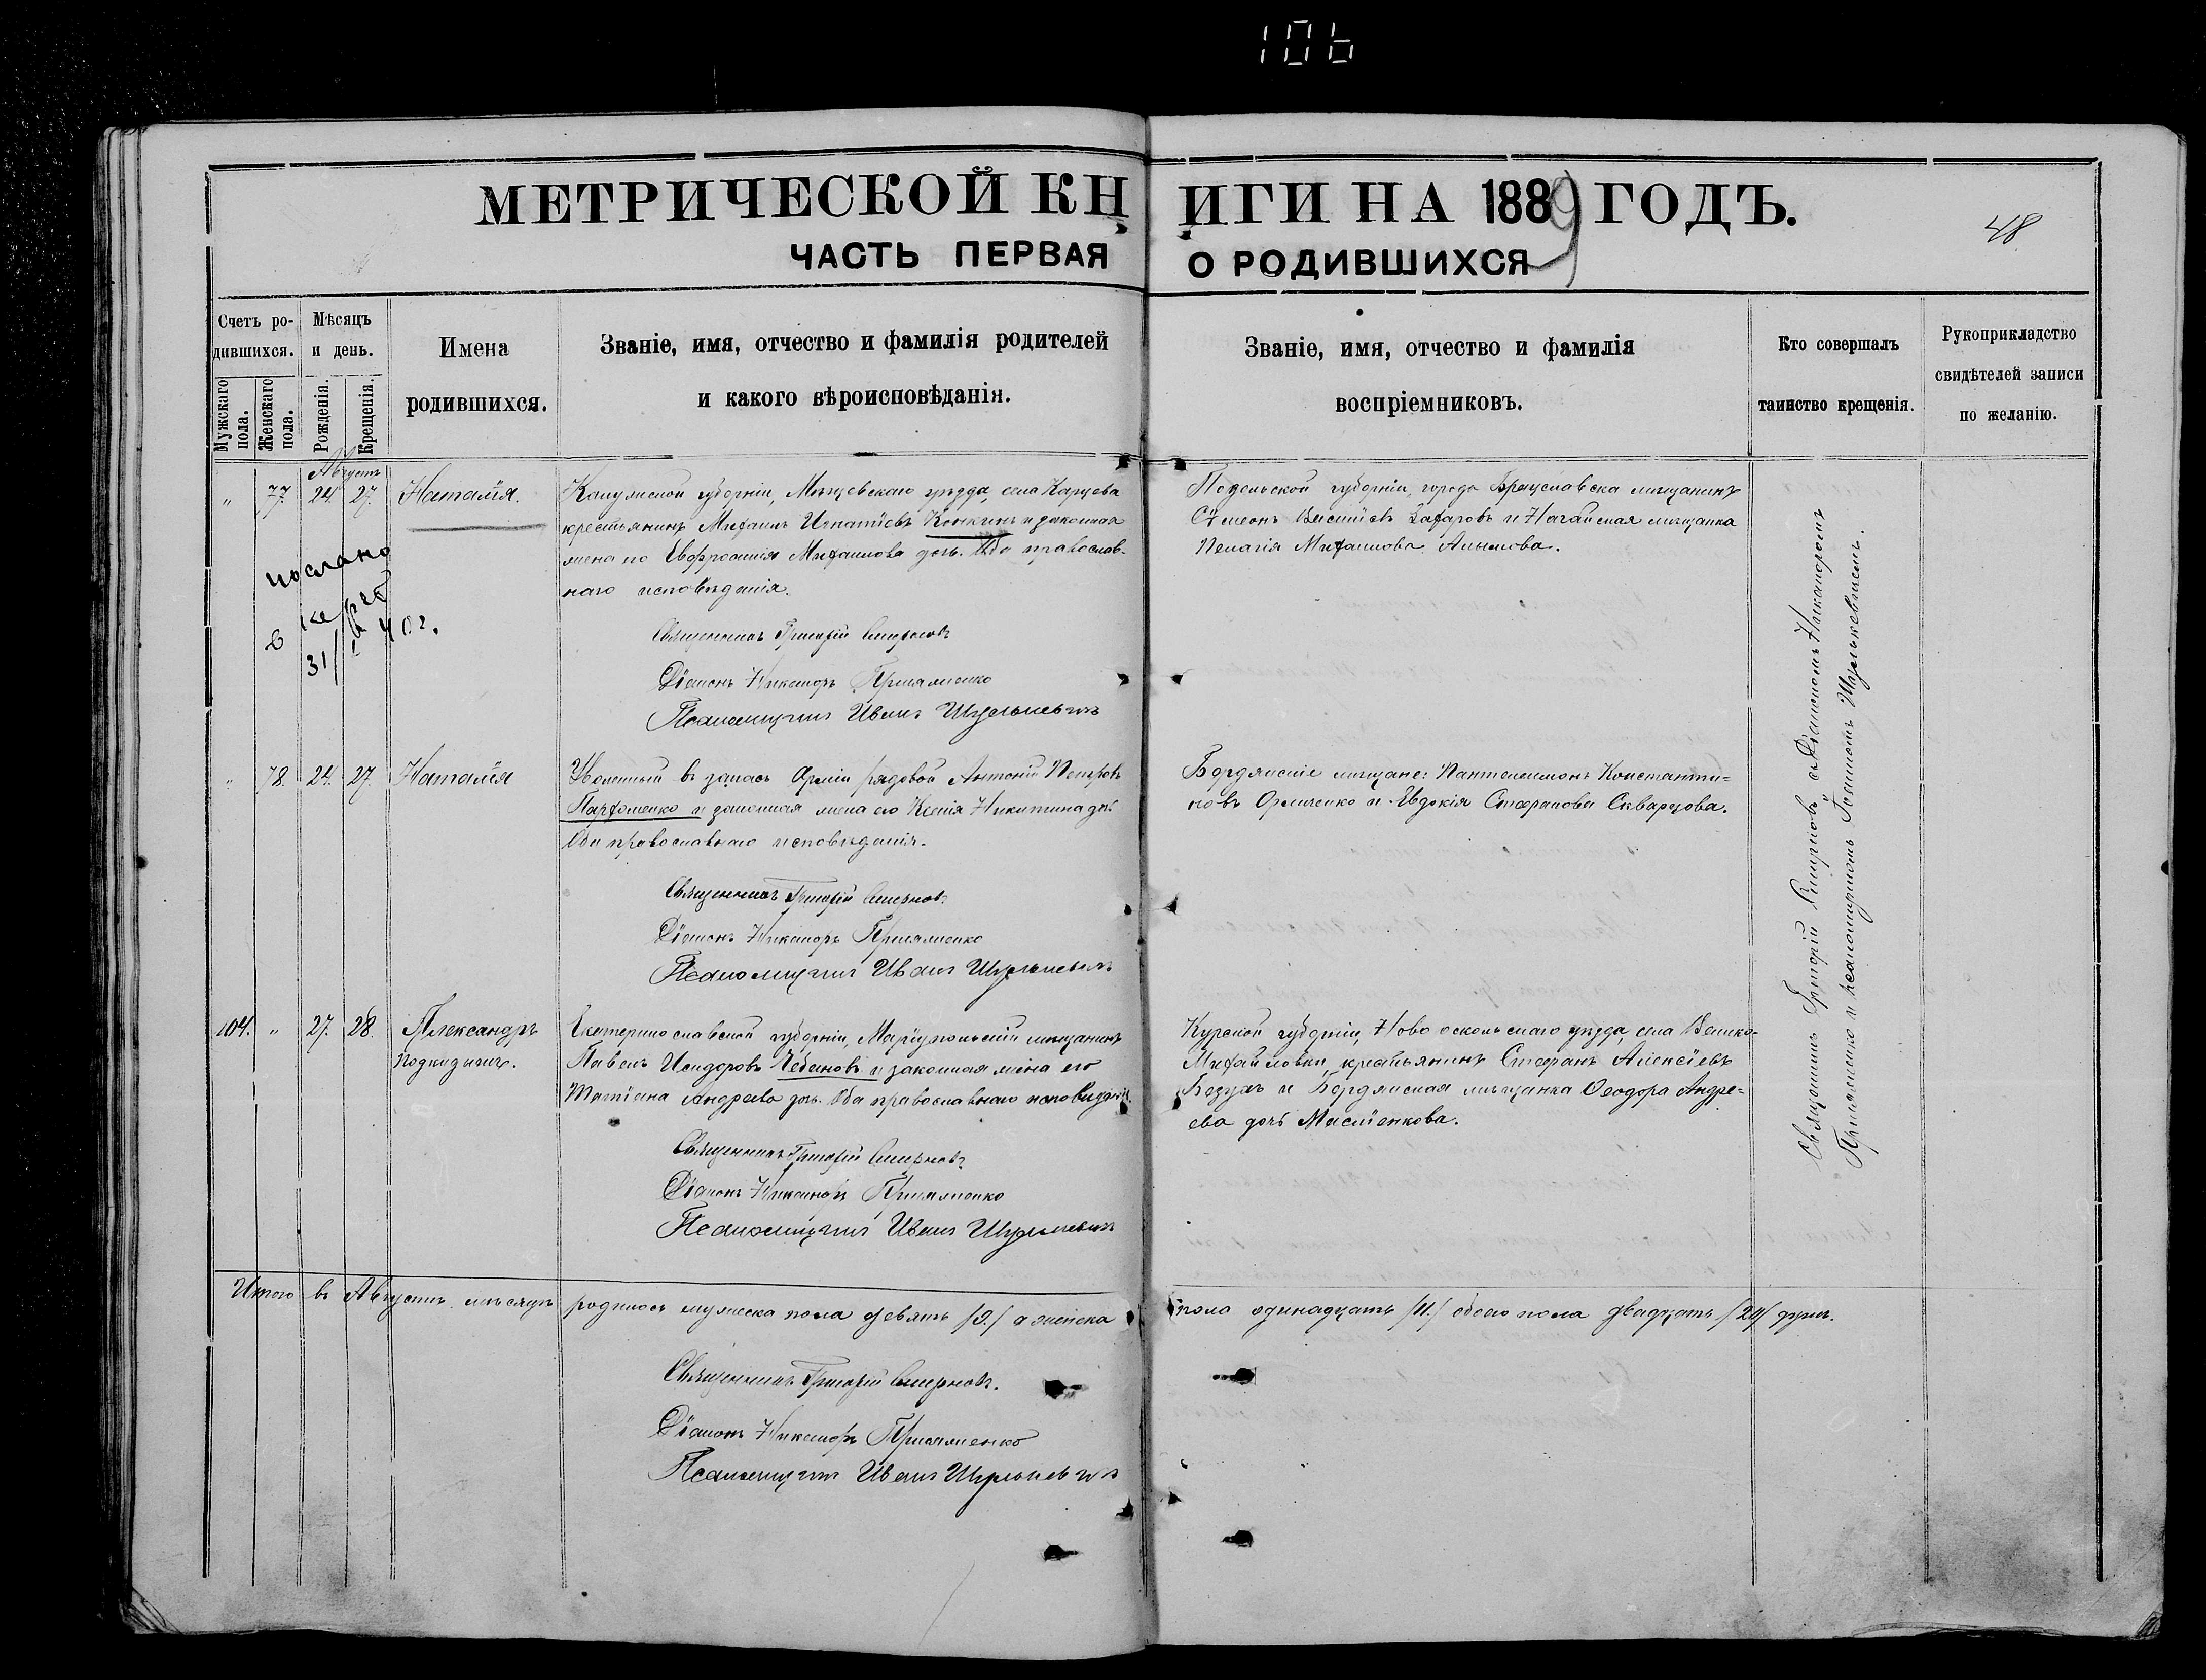 106
МЕТРИЧЕСКОЙ КНИГИ НА 1889 ГОДЪ.
48
ЧАСТЬ ПЕРВАЯ О РОДИВШИХСЯ
Счетъ ро-
дившихся.
Мужскаго пола.
Женскаго пола.
Мѣсяцъ
и день.
Рожденія.
Крещенія.
Имена
родившихся.
Званіе, имя, отчество и фамилія родителей
и какого вѣроисповѣданія.
Званіе, имя, отчество и фамилія
воспріемниковъ.
Кто совершалъ
таинство крещенія.
Рукоприкладство
свидѣтелей записи
по желанію.
Августъ
" 77. 24. 27. Наталія.
Калужской губерніи, Мещевскаго уѣзда, села Карцева
крестьянинъ Михаилъ Игнатіевъ Конкинъ и законная
жена его Евфросинія Михаилова дочь. Оба православ-
наго исповѣданія.
Священникъ Григорій Смирновъ
Діаконъ Никаноръ
Псаломщикъ Иванъ
Подольской губерніи, города Брацславска мѣщанинъ
Сѵмеонъ Захаровъ и мѣщанка
Пелагія Михаилова
послано
в
31/ 40 г.
" 78. 24. 27. Наталія
Уволенный въ запасъ Арміи рядовой Антоній Петровъ
Пархоменко и законная жена его Ксенія Никитина дочь
Оба православнаго исповѣданія.
Священникъ Григорій Смирновъ
Діаконъ Никаноръ
Псаломщикъ Иванъ
Бердянскіе мѣщане: Пантелеимонъ Константи-
новъ и Евдокія Стефанова Скварцова.
104. " 27. 28. Александръ
подкидышъ.
Екатеринославской губерніи, Маріупольскій мѣщанинъ
Павелъ Исидоровъ Чебановъ и законная жена его
Татіана Андреева дочь. Оба православнаго исповѣданія.
Священникъ Григорій Смирновъ
Діаконъ Никаноръ
Псаломщикъ Иванъ
Курской губерніи, Новооскольскаго уѣзда, села Велико-
Михайловки, крестьянинъ Стефанъ Алексіевъ
и Бердянская мѣщанка Ѳеодора Андре-
ева дочь
Священникъ Григорій Смирновъ съ Діакономъ Никаноромъ
и псаломщикомъ Іоанномъ
Итого въ Августѣ мѣсяцѣ родилось мужска пола девять /9./ а женска пола одинадцать /11./ обоего пола двадцать /20/ душъ.
Священникъ Григорій Смирновъ.
Діаконъ Никаноръ
Псаломщикъ Иванъ